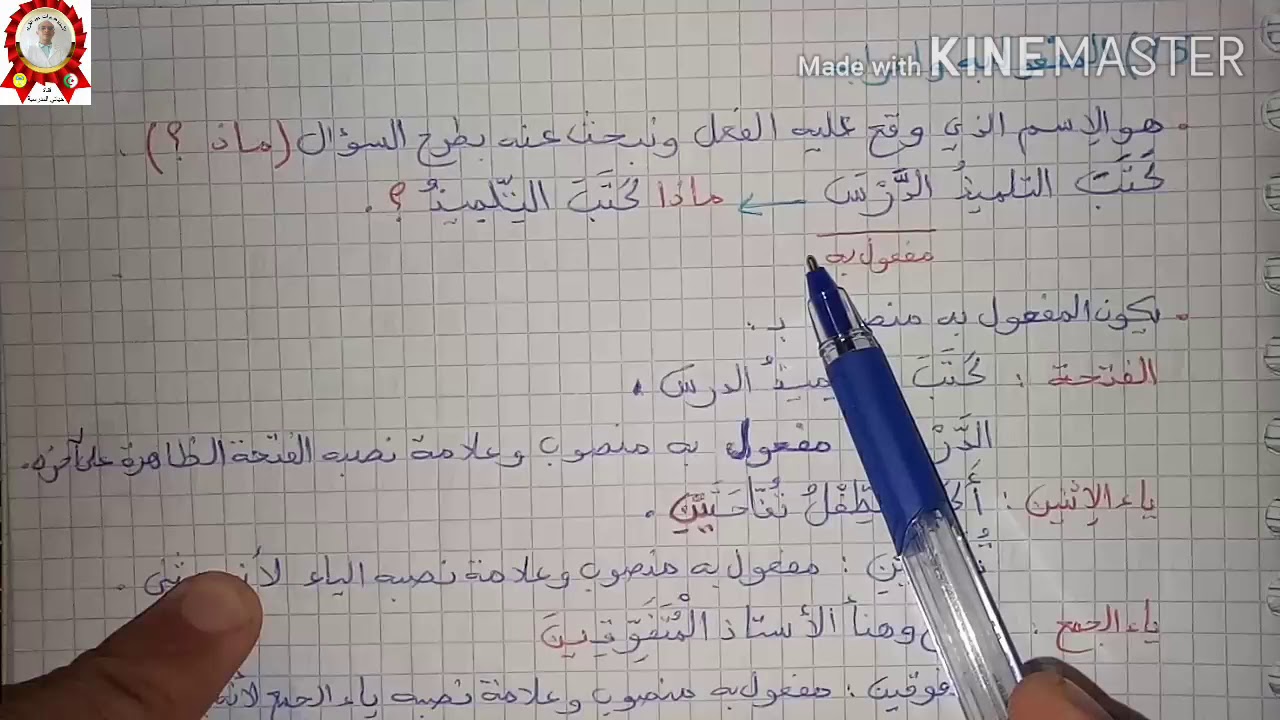 Made with KINEMASTER
المفعول به وإعرابه
• هو الاسم الذي وقع عليه الفعل ونبحث عنه بطرح السؤال (ماذا ؟) .
كَتَبَ التلميذُ الدَّرْسَ ← ماذا كَتَبَ التِّلميذُ ؟ .
مفعول به
• يكون المفعول به بـ :
الفتحة : كَتَبَ الدرسَ .
مفعول به منصوب وعلامة نصبه الفتحة الظاهرة على آخره .
ياء الإثنين : تُفَّاحَتَيْنِ .
: مفعول به منصوب وعلامة نصبه الياء .
ياء الجمع : وهنأ الأستاذ الْمُتَفَوِّقِينَ
: مفعول به منصوب وعلامة نصبه ياء الجمع
قناة